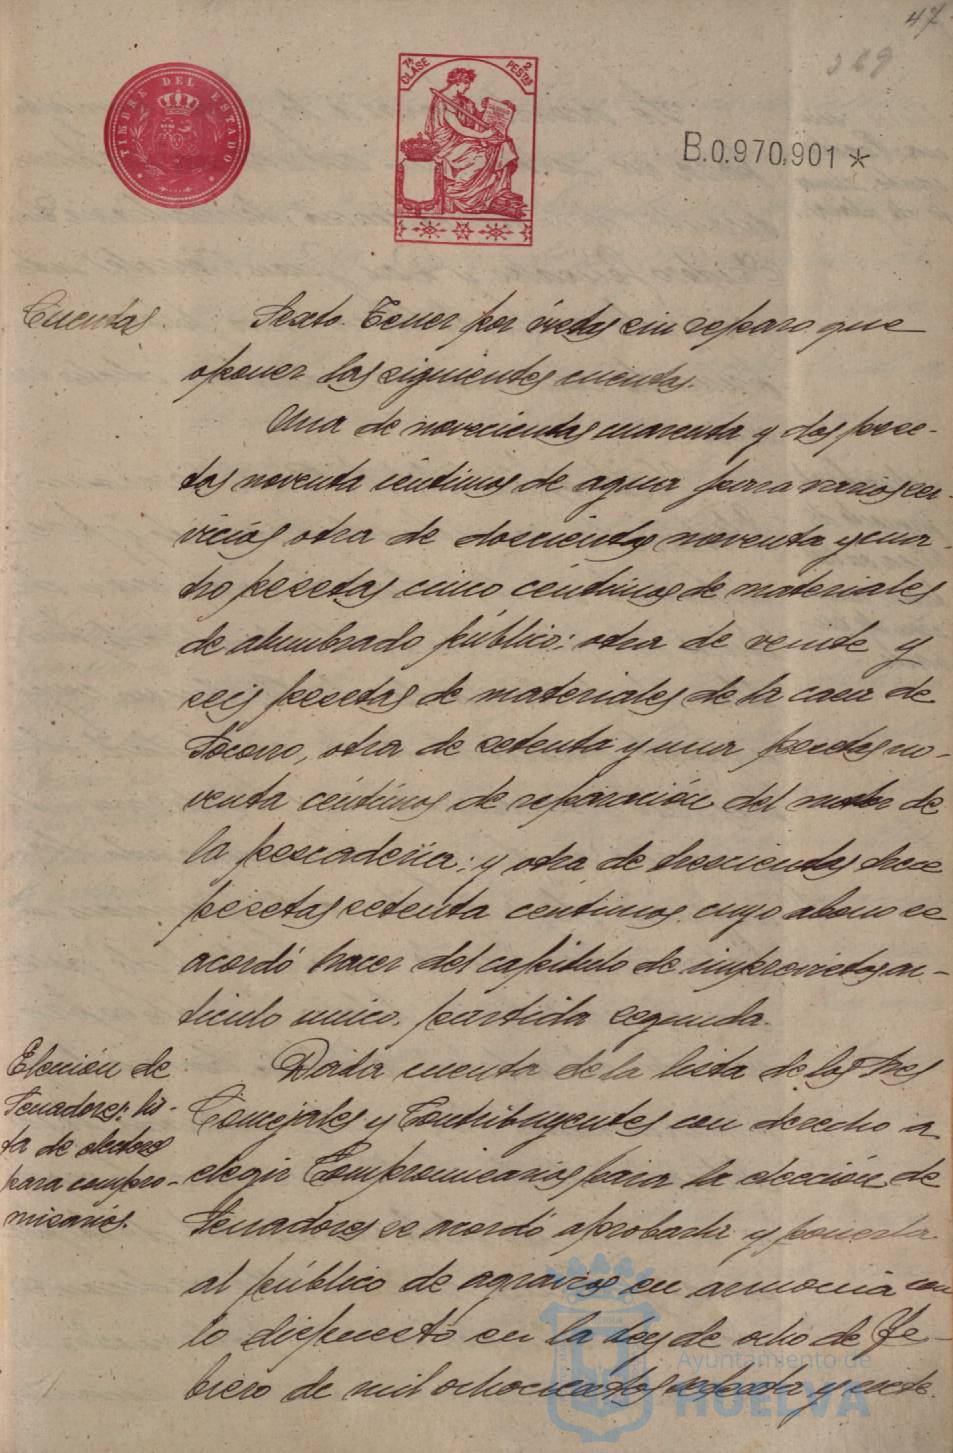 47
369
TIMBRE DEL ESTADO
7ª CLASE
2 PESTAS
B.0.970,901 *
Cuentas.
Sexto. Tener por vistas sin reparo que
oponer las siguientes cuentas.
Una de novecientas cuarenta y dos pese-
tas noventa céntimos de agua para varios ser-
vicios otra de doscientas noventa y cua-
tro pesetas cinco céntimos de materiales
de alumbrado público; otra de veinte y
seis pesetas de materiales de la casa de
Socorro, otra de setenta y una pesetas no-
venta céntimos de reparación del motor de
la pescadería; y otra de trescientas trece
pesetas setenta centimos, cuyo abono se
acordó hacer del capítulo de imprevistos ar-
ticulo unico, partida segunda.
Elección de
Senadores: lis-
ta de electores
para compro-
misarios.
Dada cuenta de la lista de los Sres
Concejales y Contribuyentes con derecho a
elegir Compromisarios para la elección de
Senadores se acordó aprobarla y ponerla
al público de agravios en armonia con
lo dispuesto en la Ley de ocho de Fe-
brero de mil ochocientos setenta y siete.
Ayuntamiento de
HUELVA